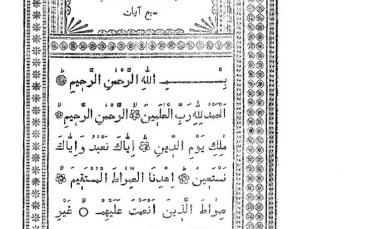 سبع آيات
بِسْمِ اللهِ الرَّحْمٰنِ الرَّحِيْمِ
اَلْحَمْدُ لِلهِ رَبِّ الْعٰلَمِيْنَ الرَّحْمٰنِ الرَّحِيْمِ
مٰلِكِ يَوْمِ الدِّيْنِ اِيَّاكَ نَعْبُدُ وَاِيَّاكَ
نَسْتَعِيْنُ اِهْدِنَا الصِّرَاطَ الْمُسْتَقِيْمَ
صِرَاطَ الَّذِيْنَ اَنْعَمْتَ عَلَيْهِمْ غَيْرِ